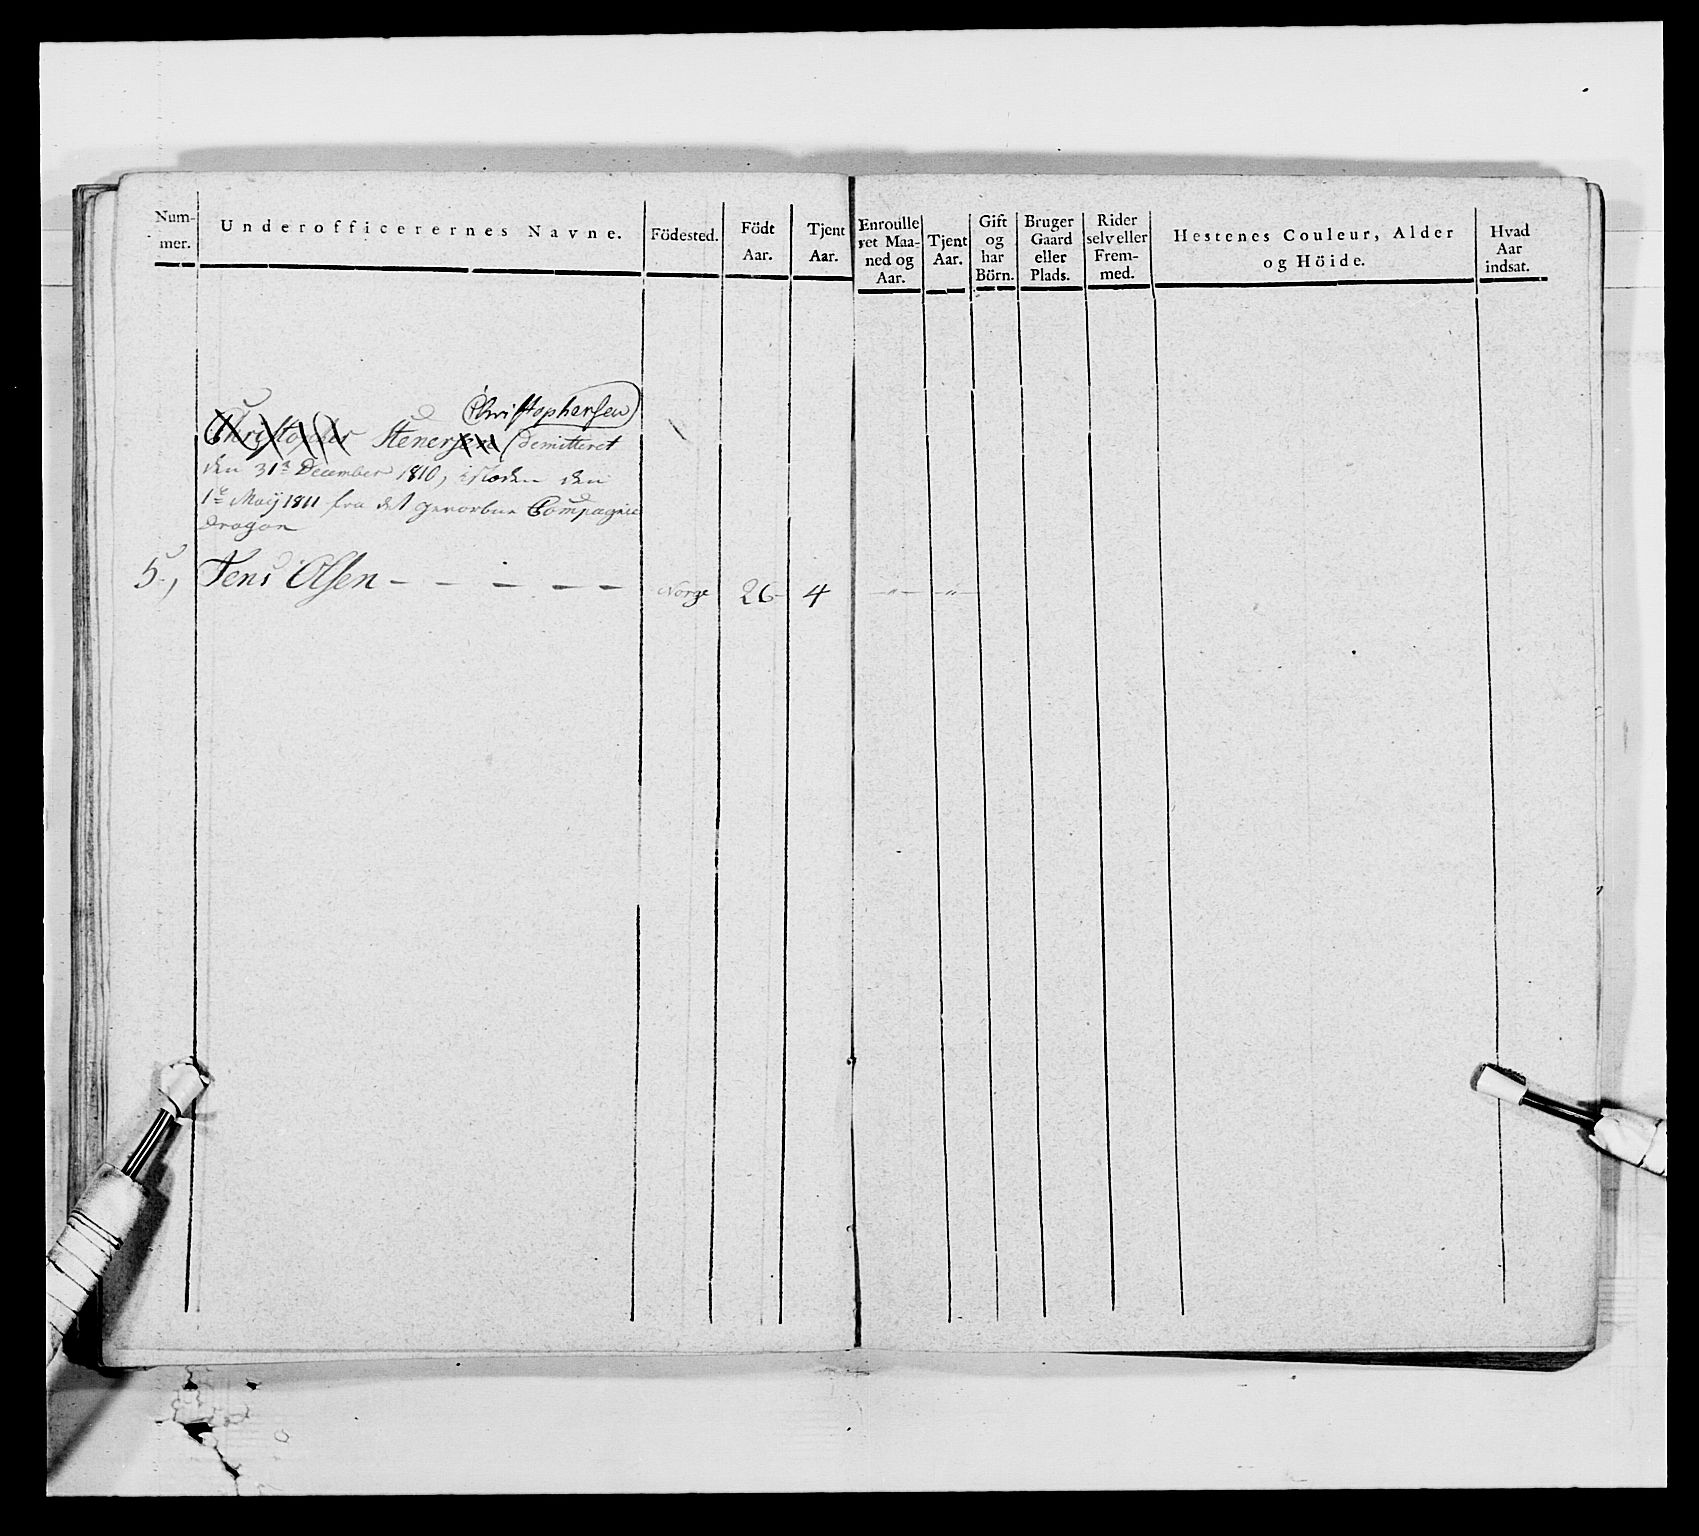 Num-
mer.
Underofficerernes Navne.
Födested.
Födt
Aar.
Tjent
Aar.
Enroulle
ret Maa-
ned og
Aar.
Tjent
Aar.
Gift
og
har
Börn.
Bruger
Gaard
eller
Plads.
Rider
selv eller
Frem-
med.
Hestenes Couleur, Alder
og Höide.
Hvad
Aar
indsat.
Christophersen
Christopher Stenersen (demitteret
den 31te December 1810, i Steden den
1te Maij 1811 fra det gevorbne Compagnie
Dragon
5, Jens Olsen — — — — — Norge 26 4 —"— —"—